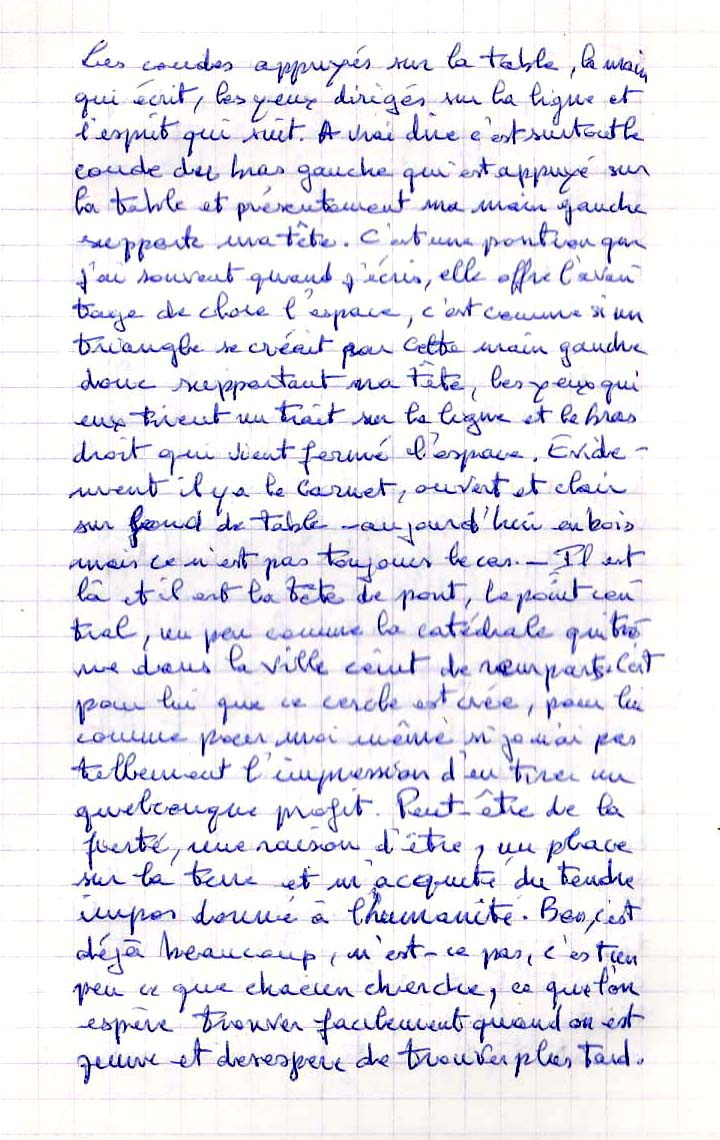 Les coudes appuyés sur la table, la main
qui écrit, les yeux dirigés sur la ligne et
l'esprit qui suit. A vrai dire c'est surtout le
coude du bras gauche qui est appuyé sur
la table et présentement ma main gauche
supporte ma tête. C'est une position que
j'ai souvent quand j'écris, elle offre l'avan
tage de clore l'espace, c'est comme si un
triangle se créait par cette main gauche
donc supportant ma tête, les yeux qui
eux tirent un trait sur la ligne et le bras
droit qui vient fermé l'espace. Evide-
mment il y a le carnet, ouvert et clair
sur fond de table - aujourd'hui en bois
mais ce n'est pas toujours le cas. - Il est
là et il est la tête de pont, le point cen
tral, un peu comme la catédrale qui trô
ne dans la ville ceint de remparts. C'est
pour lui que ce cercle est crée, pour lui
comme pour moi même si je n'ai pas
tellement l'impression d'en tirer un
quelconque profit. Peut-être de la
fierté, une raison d'être, un place
sur la terre et m'acquité du tendre
impos donné à l'humanité. Bon, c'est
déjà beaucoup, n'est-ce pas, c'est un
peu ce que chacun cherche, ce que l'on
espère trouver facilement quand on est
jeune et desespere de trouver plus tard.